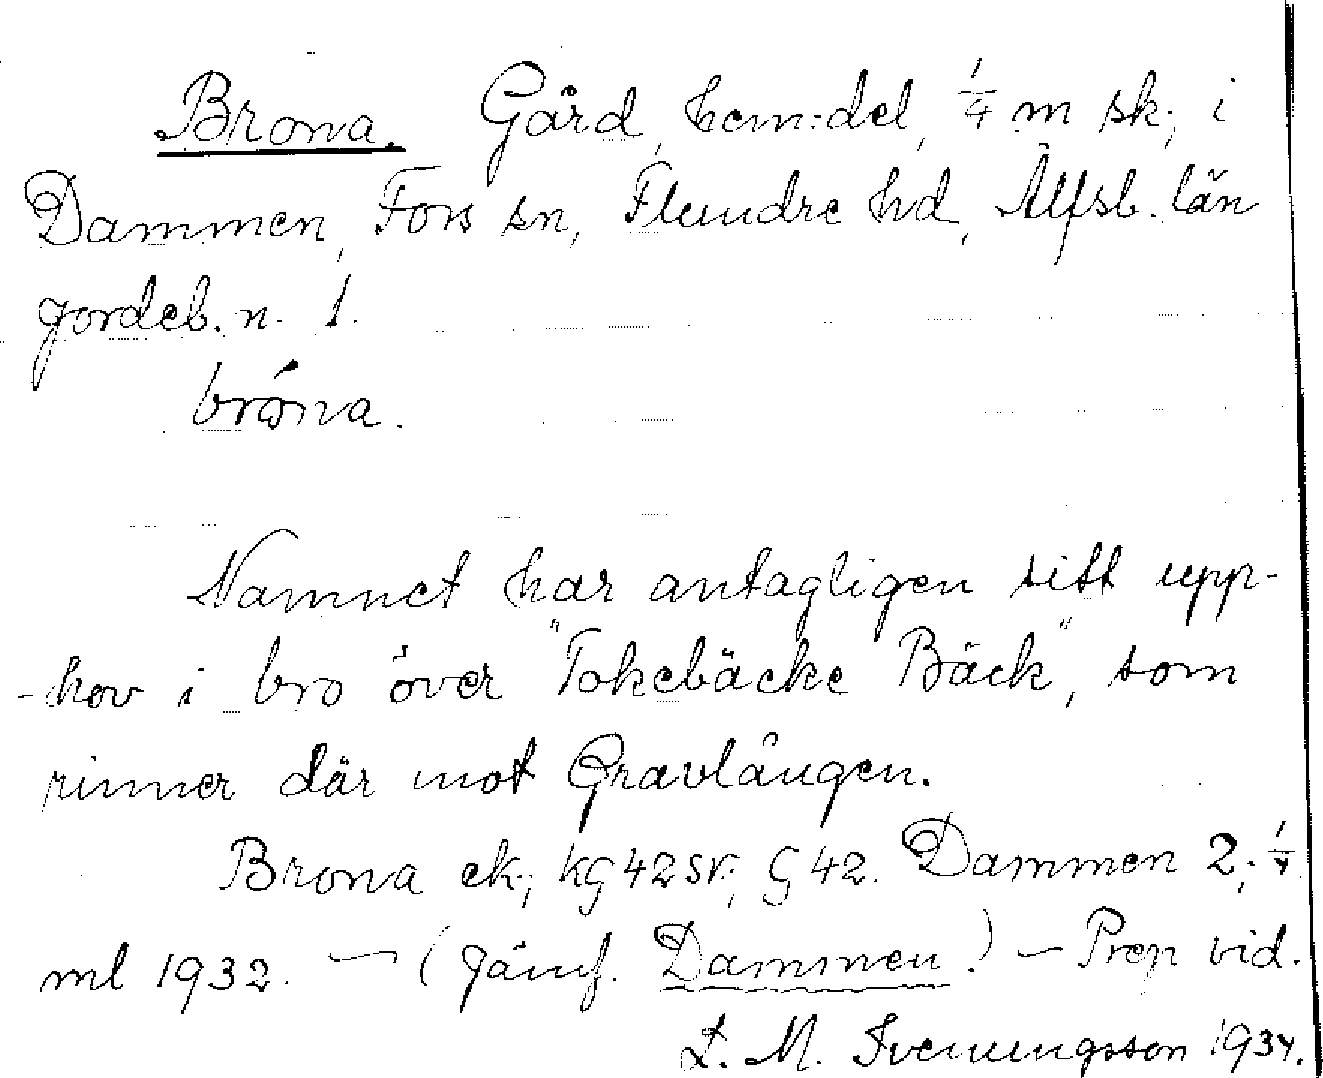 Brona. Gård, hem:del, 1/4 m sk; i
Dammen, Fors sn, Flundre hd, Älfsb. län
jordeb. n. 1.
bróna.
Namnet har antagligen sitt upp-
-hov i bro över "Tokebäcke Bäck", som
rinner där mot Gravlången.
Brona ek; kG 42 sv; G 42. Dammen 2; 1/4
ml 1932. — (Jämf. Dammen.) — Prep vid.
L. M. Svenungsson 1934.